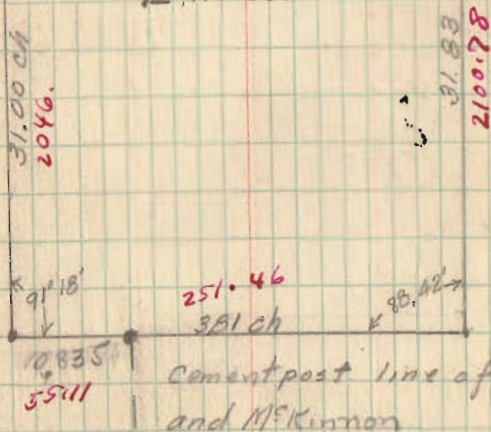 31.00 ch
2046.
31.83
2100.78
91°18'
251.46
88.42'
3.81 ch
0.835
55.11
Cement post line of
and McKinnon